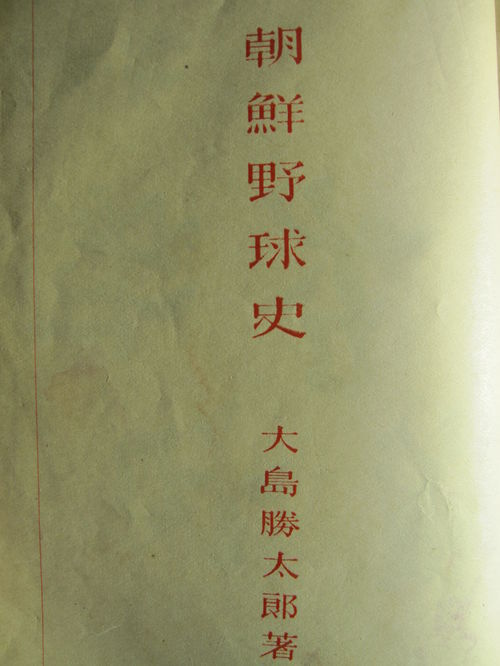 朝鮮野球史
大島勝太郎著